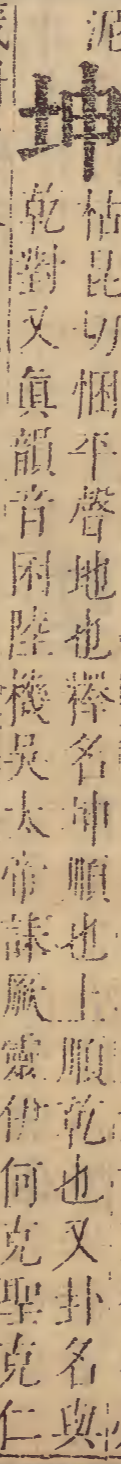 坤
怙昆切悃平聲地也釋名坤順也上順乾也又卦名與
乾對又眞韻音困陸機吳太帝誄厥靈伊何克聖克仁